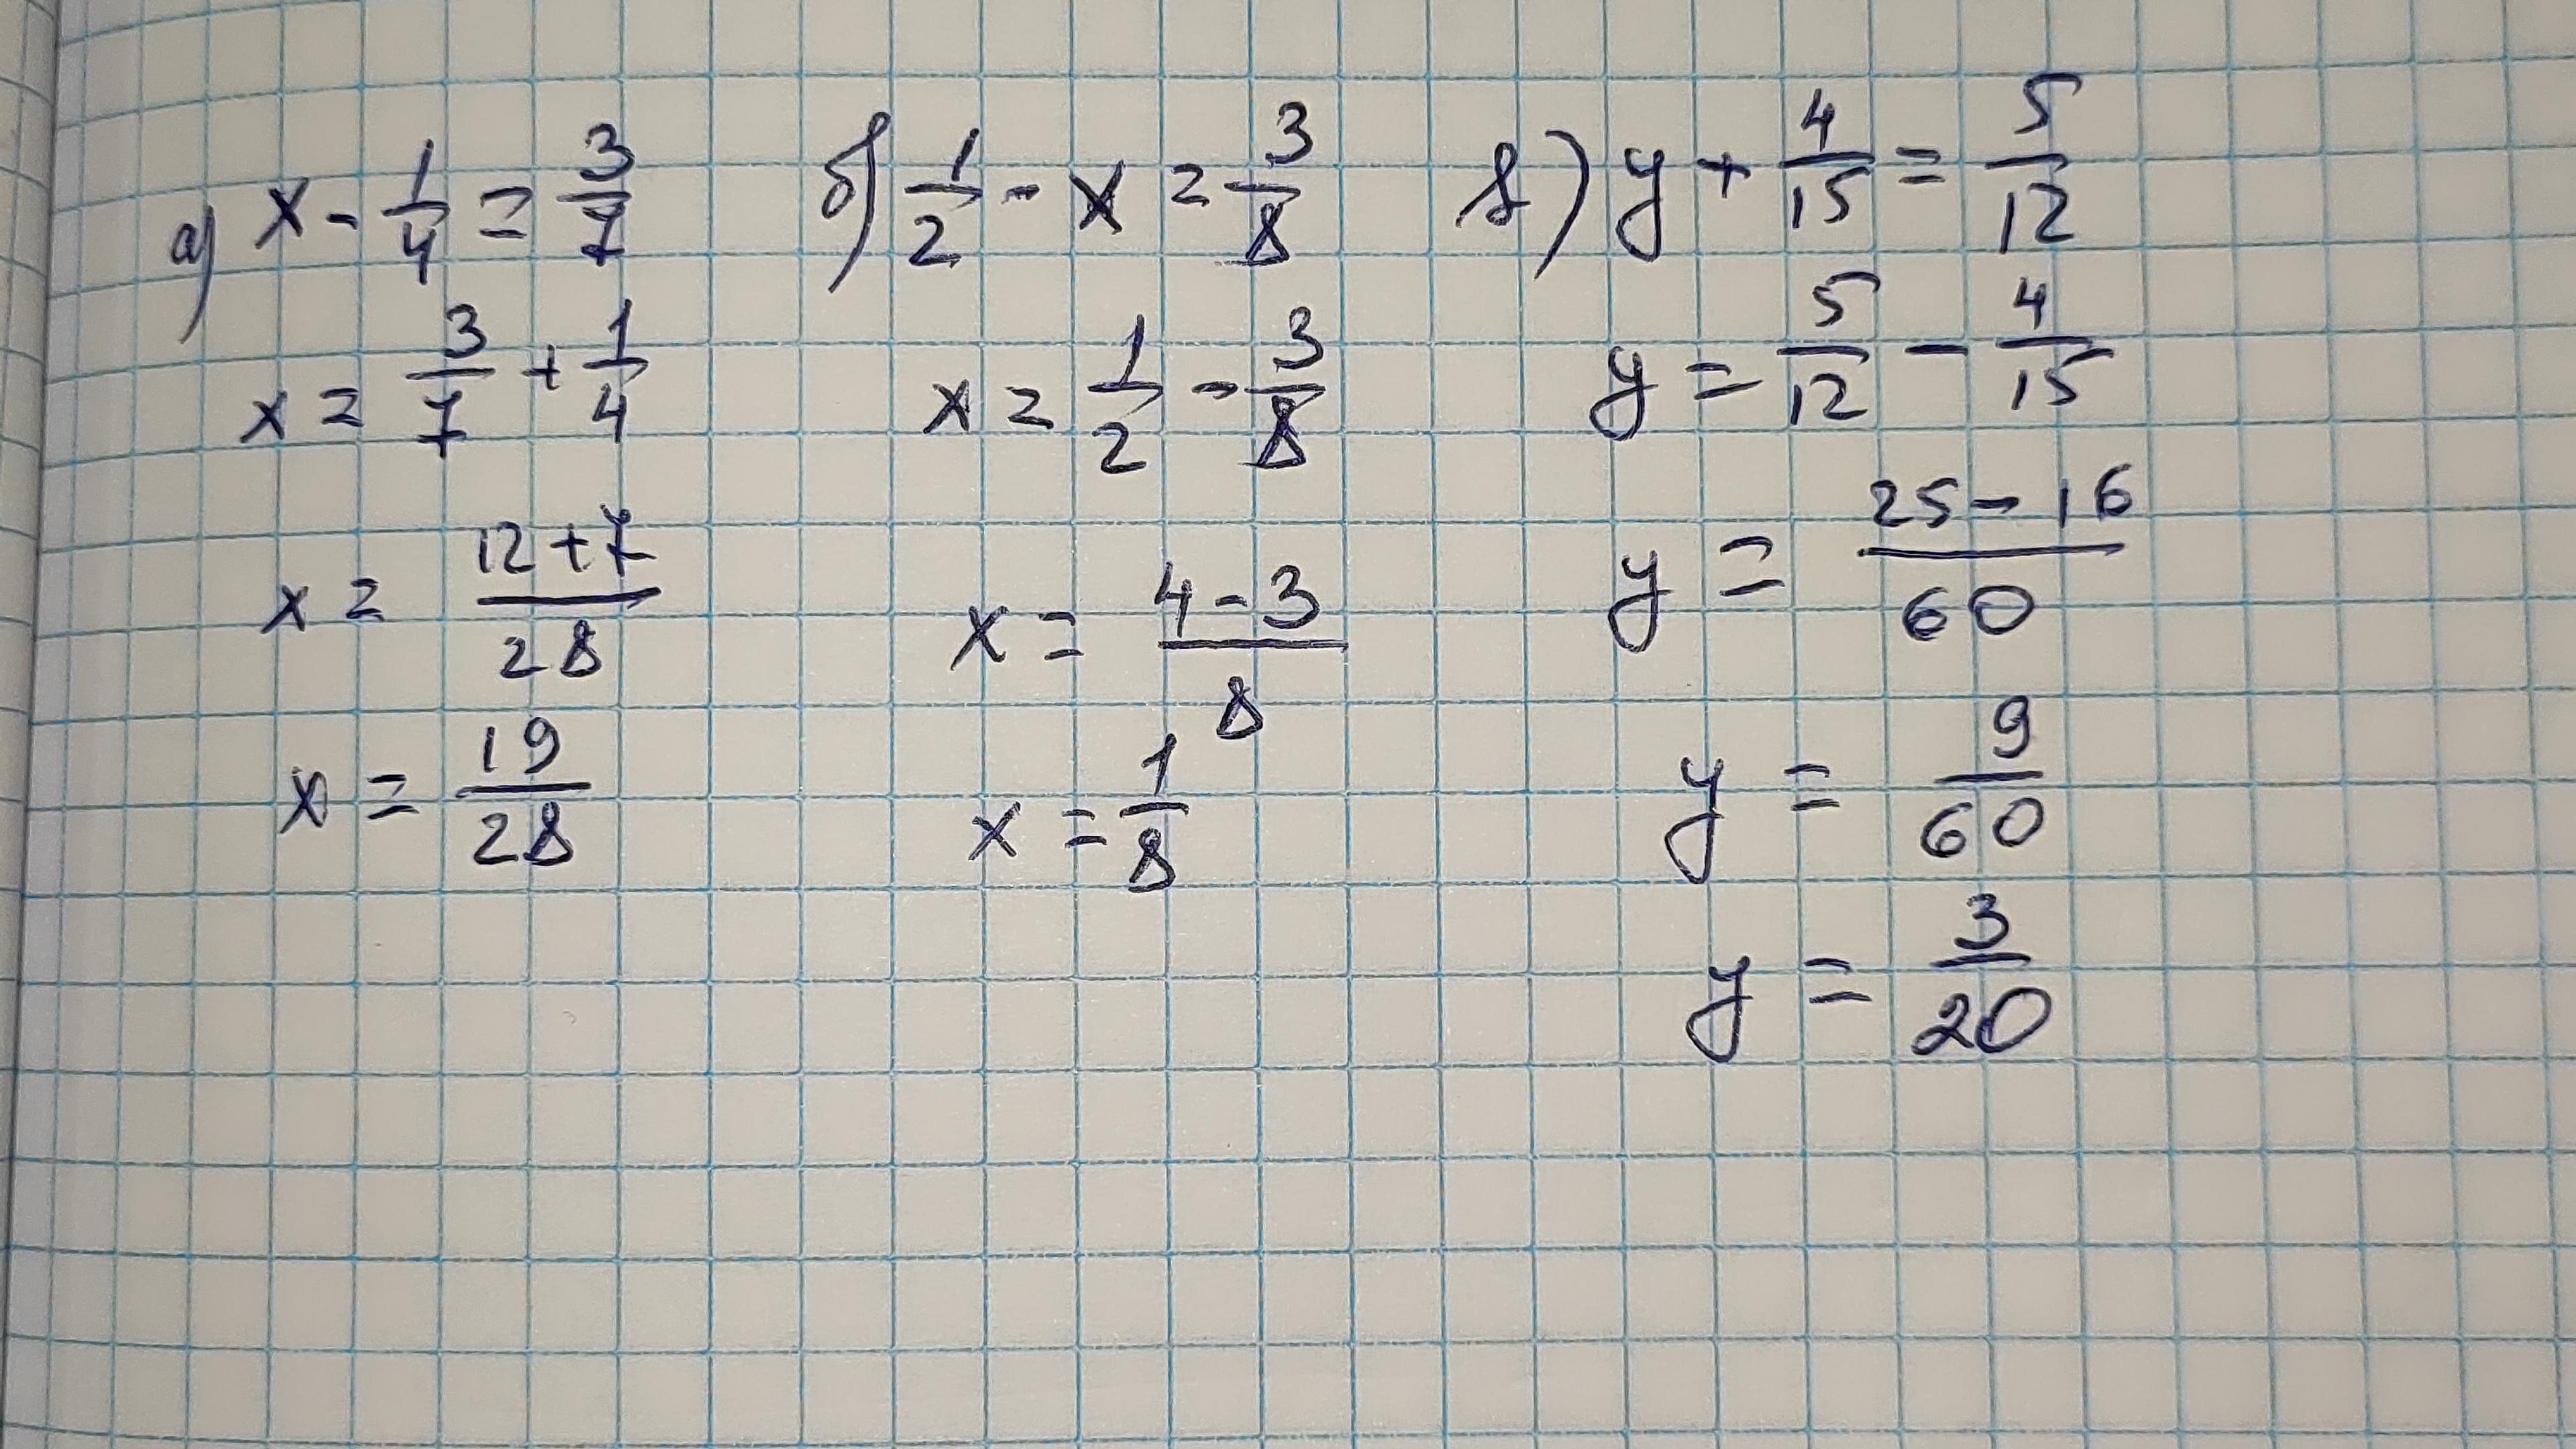 а) x - 1/4 = 3/7
x = 3/7 + 1/4
x = (12+7)/28
x = 19/28
б) 1/2 - x = 3/8
x = 1/2 - 3/8
x = (4-3)/8
x = 1/8
в) y + 4/15 = 5/12
y = 5/12 - 4/15
y = (25-16)/60
y = 9/60
y = 3/20